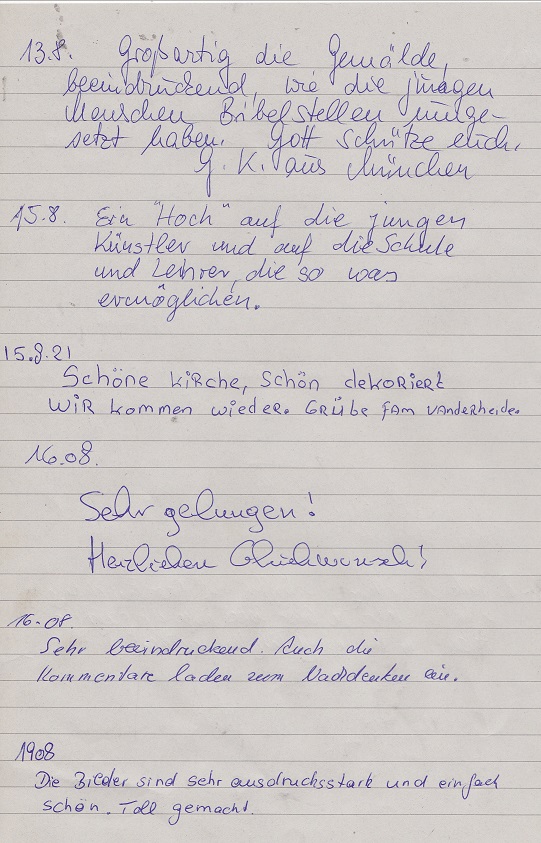 13.8. Großartig die Gemälde,
beeindruckend, wie die jungen
Menschen Bibelstellen umge-
setzt haben. Gott schütze euch.
G. K. aus München
15.8. Ein "Hoch" auf die jungen
Künstler und auf die Schule
und Lehrer, die so was
ermöglichen.
15.8.21
Schöne Kirche, schön dekoriert
Wir kommen wieder. Grüße Fam Vanderheide.
16.08.
Sehr gelungen!
Herzlichen Glückwunsch!
16.08.
Sehr beeindruckend. Auch die
Kommentare laden zum Nachdenken ein.
1908
Die Bilder sind sehr ausdrucksstark und einfach
schön. Toll gemacht.